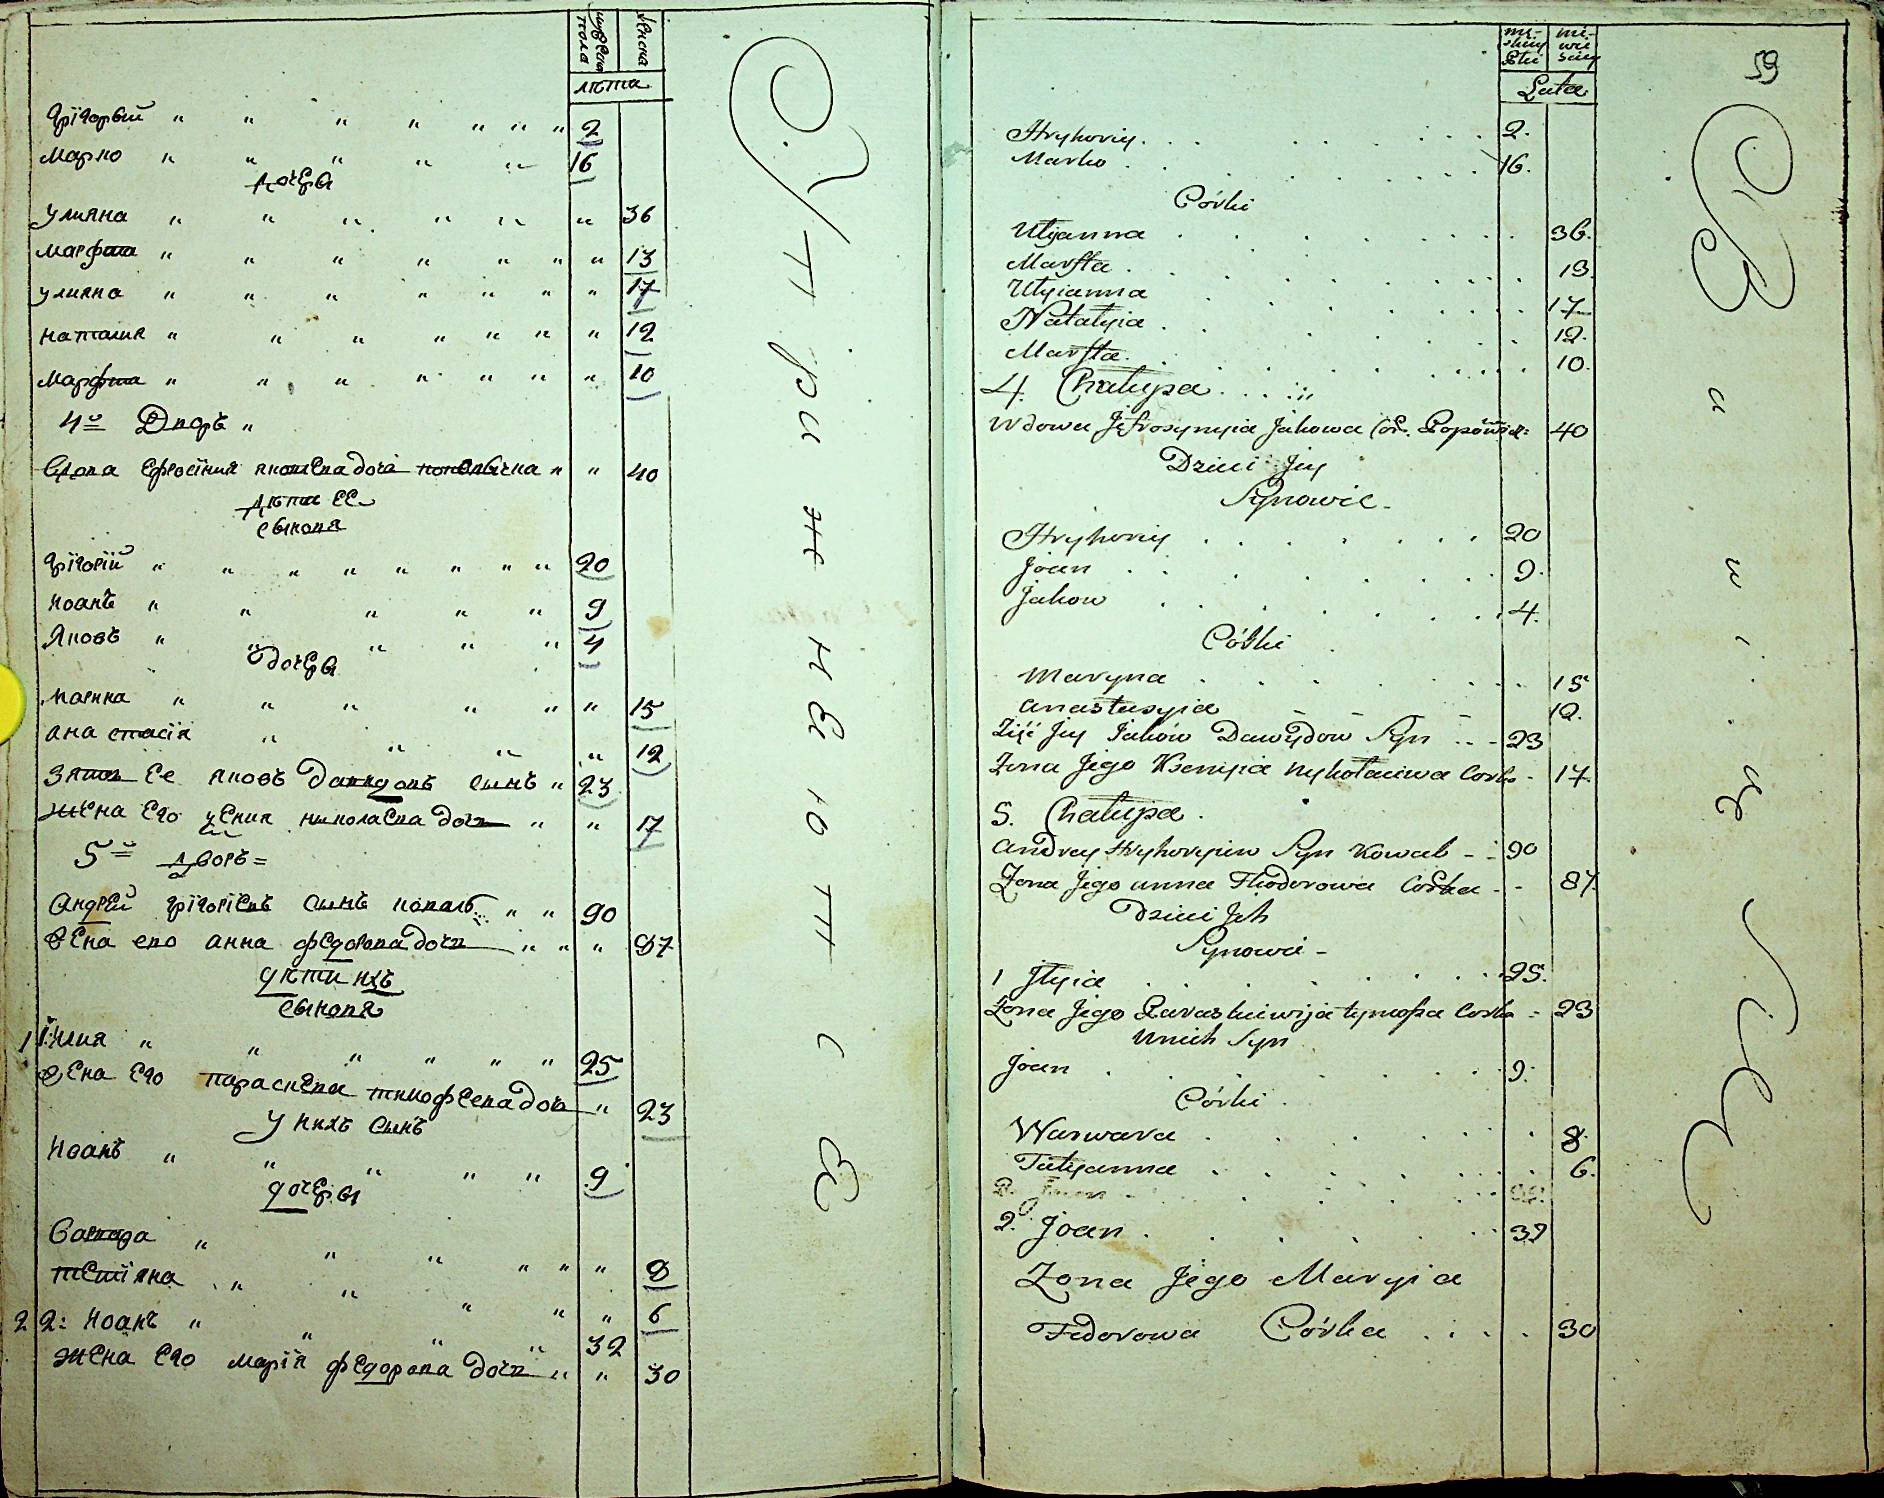 мужеска пола
женска
лѣта
Григорвий " " " " " " " 2
Марко " " " " " 16
дочеры
Улияна " " " " " " 36
Марфа " " " " " " " 13
Улияна " " " " " " " 17
Наталия " " " " " " " 12
Марфа " " " " " " " 10
4й Дворъ "
Вдова Ефросіния яковлева дочь поповична " " 40
дѣти ее
сыновя
Григорій " " " " " " " " 20
Иоанъ " " " " " 9
Яковъ " " " " " 4
дочеры
Марина " " " " " " 15
Анастасія " " " " 12
Зять ее яковъ Давидовъ сынъ " 23
Жена его ксения николаева дочь " " 17
5й дворъ =
Андрей григоріевъ сынъ коваль " " 90
Жена его анна федорова дочь " " " 87
дѣти ихъ
сыновя
1 Илия " " " " " " 25
Жена его параскева тимофеева дочь " 23
У нихъ сынъ
Иоанъ " " " " " 9
дочеры
Варвара " " " " " " 8
Тетіяна " " " " " 6
2 2: Иоанъ " " " " 32
Жена его Марія федорова дочь " " 30
Лата
59
Hryhoriy 2.
Marko 16.
Córki
Ulyanna 36.
Marfta 13.
Ulyianna 17
Natalyia 12.
Marfta 10.
4. Chałupa
Wdowa Jefrosynyia Jakowa Cór. Popowicz: 40
Dzieci Jey
Synowie
Hryhoriy 20
Joan 9.
Jakow 4.
Córki
Maryna 15
Anastasyia 12.
Zięć Jey Jakow Dawydow Syn 23
Żona Jego Ksenyia Nykołaiewa Corka 17.
5. Chałupa.
Andrey Hryhoryiew Syn Kowal 90
Żona Jego Anna Fhiodorowa Corka 87.
Dzieci Jch
Synowie
1 Jlyia 25.
Żona Jego Paraskiewija tymofia Corka 23
Unich Syn
Joan 9.
Córki
Warwara 8.
Tatyanna 6.
2. Joan 32
Żona Jego Maryia
Fedorowa Córka 30